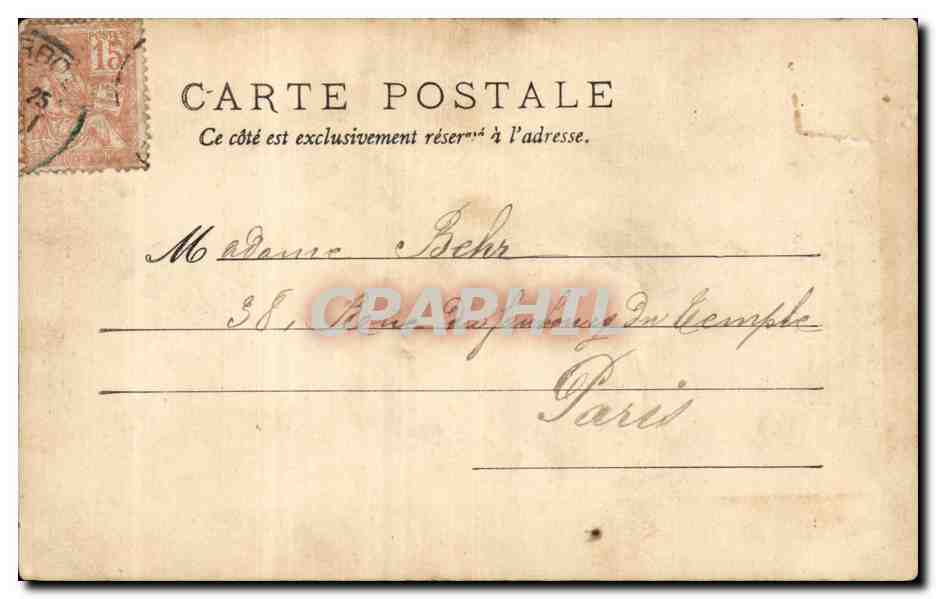 POSTES
15
25
CARTE POSTALE
Ce côté est exclusivement réservé à l'adresse.
Madame Behr
38, Rue du faubourg du Temple
CPAPHIL
Paris